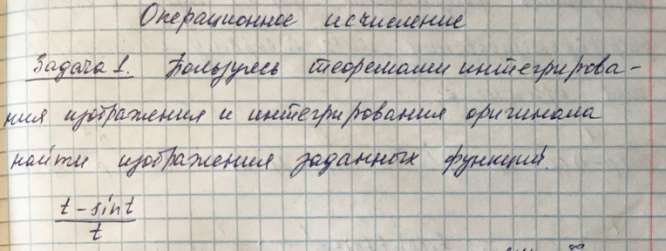 Операционное исчисление
Задача 1. Пользуясь теоремами интегрирова-
ния изображения и интегрирования оригинала
найти изображения заданных функций.
t - sint
t